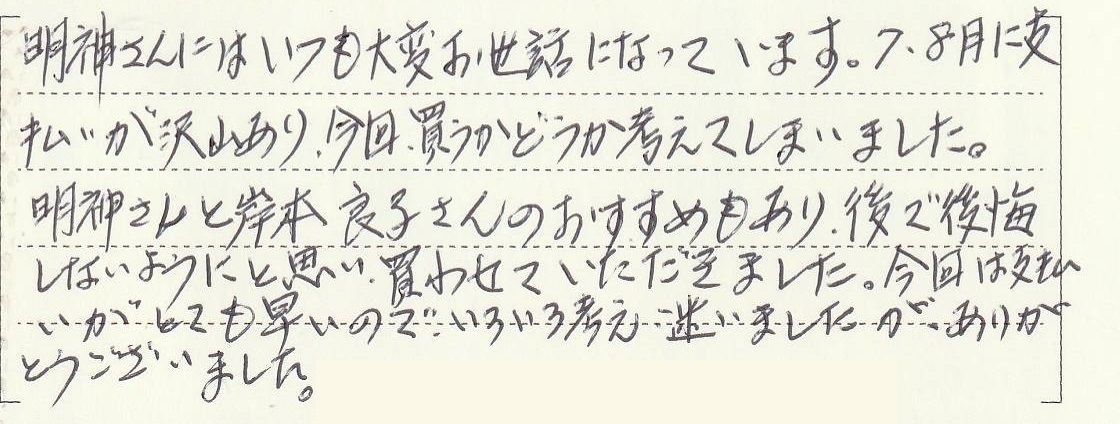 明神さんにはいつも大変お世話になっています。7、8月に支
払いが沢山あり、今回、買うかどうか考えてしまいました。
明神さんと岸本良子さんのおすすめもあり、後で後悔
しないようにと思い、買わせていただきました。今回は支払
いがとても早いので、いろいろ考え、迷いましたが、ありが
とうございました。